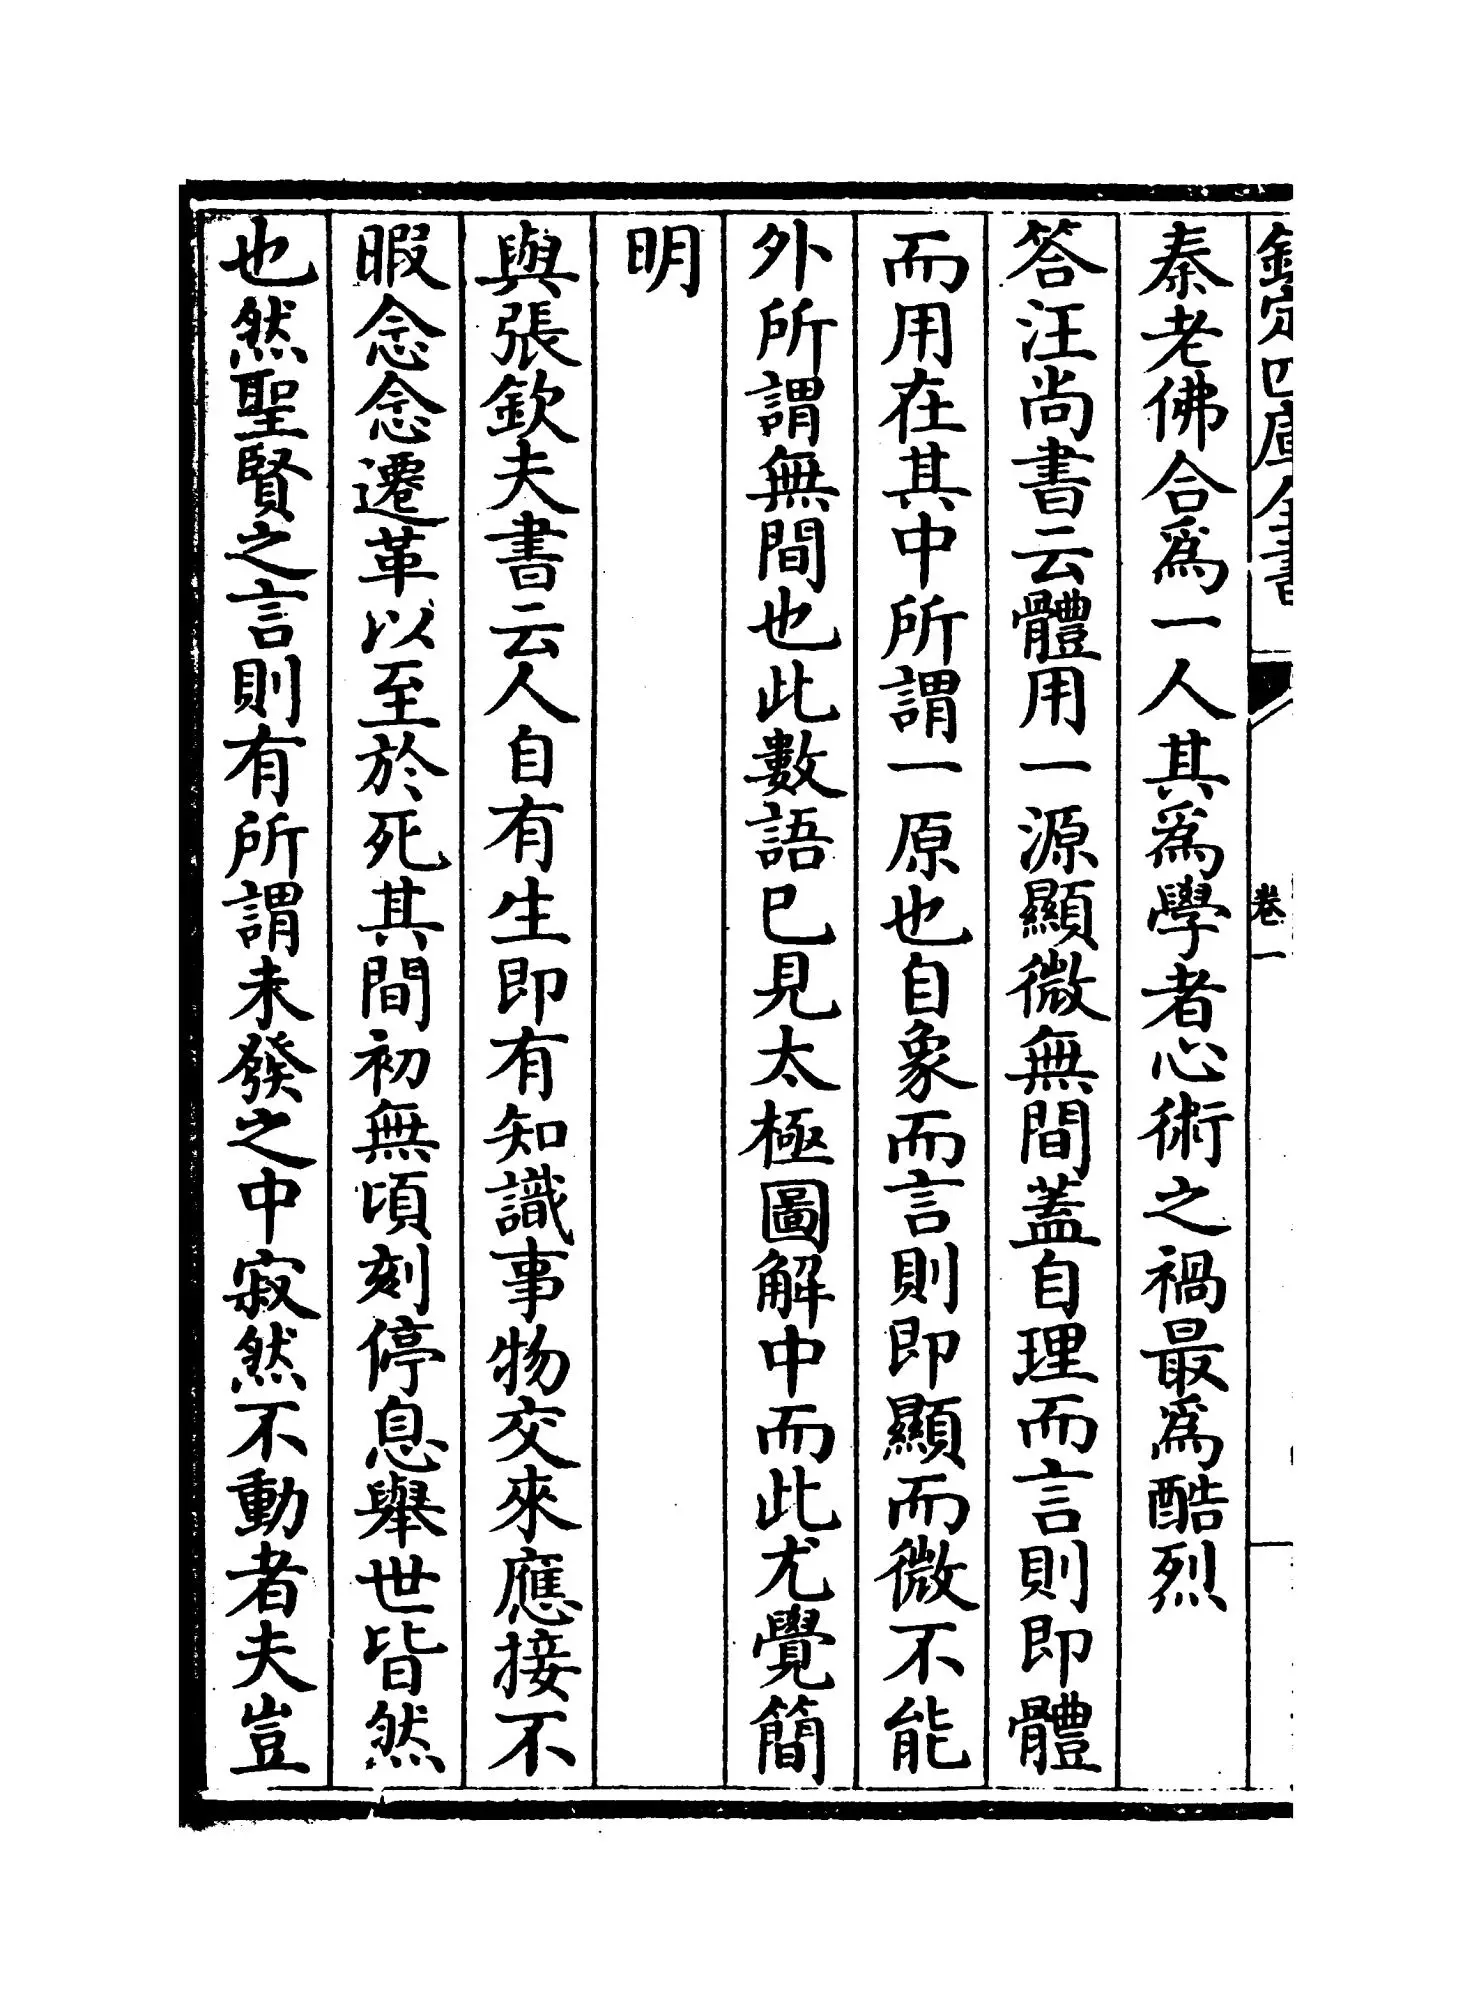 欽定四庫全書
卷一
秦老佛合爲一人其爲學者心術之禍最爲酷烈
答汪尚書云體用一源顯微無間蓋自理而言則即體
而用在其中所謂一原也自象而言則即顯而微不能
外所謂無間也此數語已見太極圖解中而此尤覺簡
明
與張欽夫書云人自有生即有知識事物交來應接不
暇念念遷革以至於死其間初無頃刻停息舉世皆然
也然聖賢之言則有所謂未發之中寂然不動者夫豈